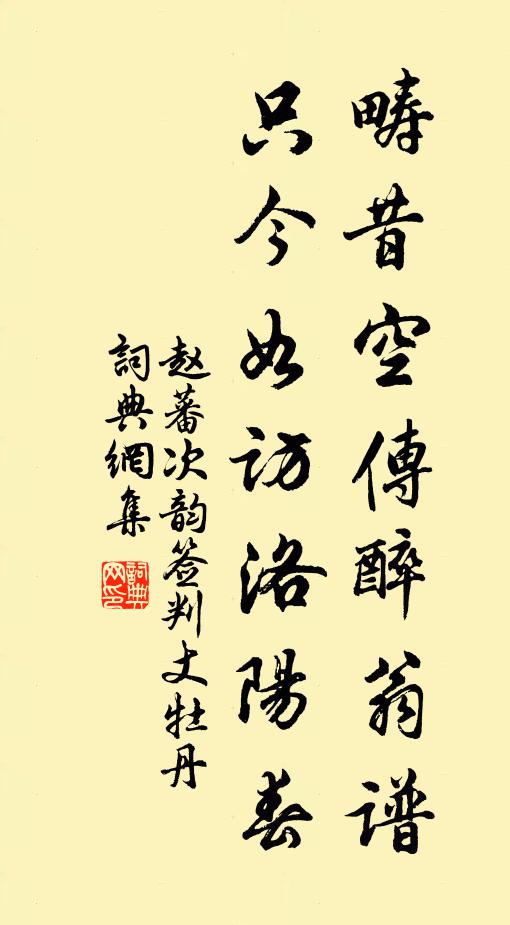 畴昔空傳醉翁譜
只今如訪洛陽春
赵蕃次韵签判丈牡丹
詞典網集
詞典网印